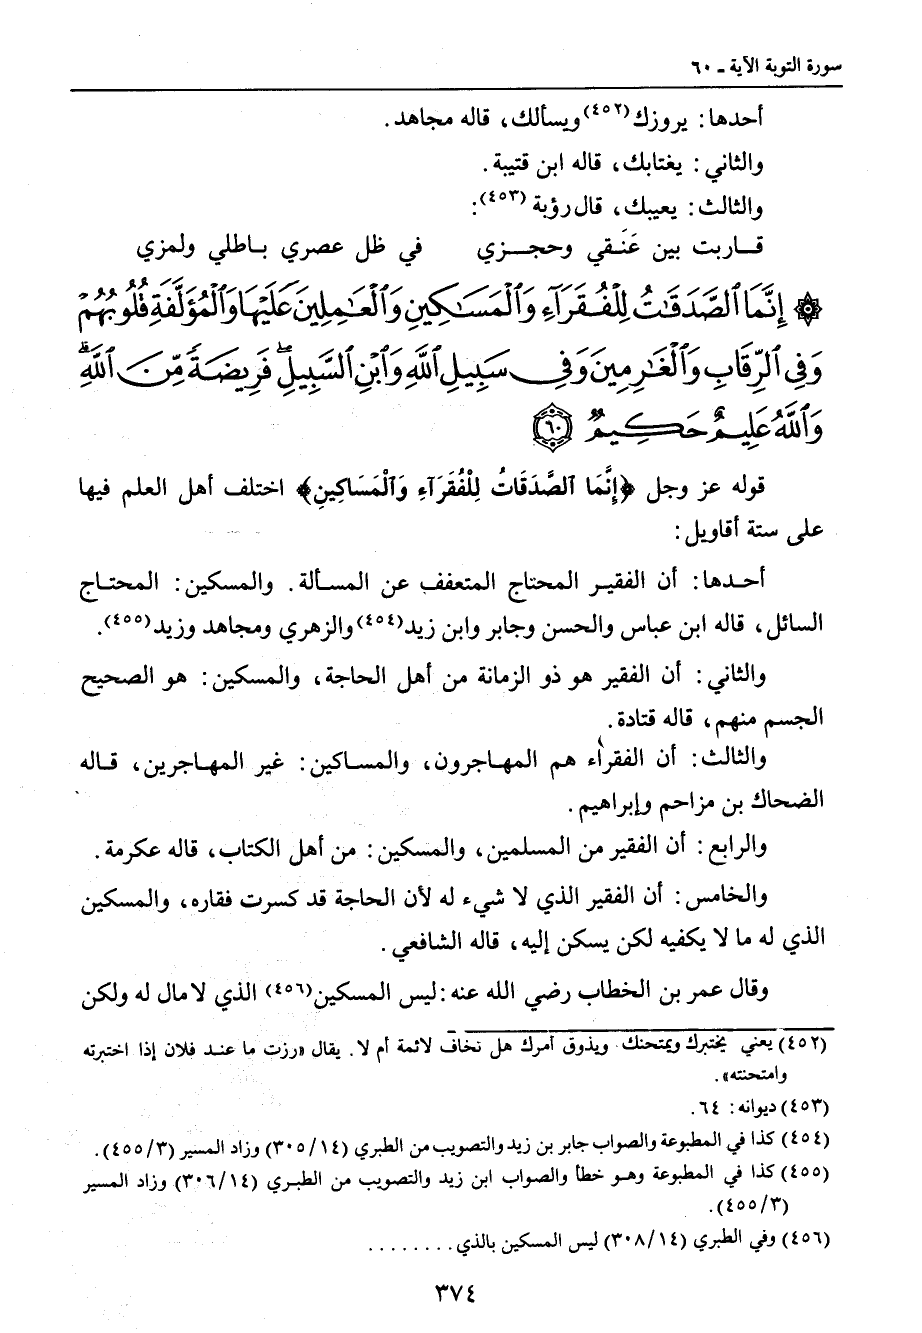 سورة التوبة الآية ـ ٦٠
أحدها: يروزك(٤٥٢) ويسألك، قاله مجاهد.
والثاني: يغتابك، قاله ابن قتيبة.
والثالث: يعيبك، قال رؤبة(٤٥٣):
قاربت بين عَنَقي وحجزي في ظل عصري باطلي ولمزي
۞ إِنَّمَا ٱلصَّدَقَٰتُ لِلْفُقَرَآءِ وَٱلْمَسَٰكِينِ وَٱلْعَٰمِلِينَ عَلَيْهَا وَٱلْمُؤَلَّفَةِ قُلُوبُهُمْ
وَفِى ٱلرِّقَابِ وَٱلْغَٰرِمِينَ وَفِى سَبِيلِ ٱللَّهِ وَٱبْنِ ٱلسَّبِيلِۖ فَرِيضَةً مِّنَ ٱللَّهِۗ
وَٱللَّهُ عَلِيمٌ حَكِيمٌ ٦٠
قوله عز وجل ﴿إِنَّمَا الصَّدَقَاتُ لِلْفُقَرَآءِ وَالْمَسَاكِينِ﴾ اختلف أهل العلم فيها
على ستة أقاويل:
أحدها: أن الفقير المحتاج المتعفف عن المسألة. والمسكين: المحتاج
السائل، قاله ابن عباس والحسن وجابر وابن زيد(٤٥٤) والزهري ومجاهد وزيد(٤٥٥).
والثاني: أن الفقير هو ذو الزمانة من أهل الحاجة، والمسكين: هو الصحيح
الجسم منهم، قاله قتادة.
والثالث: أن الفقراء هم المهاجرون، والمساكين: غير المهاجرين، قاله
الضحاك بن مزاحم وإبراهيم.
والرابع: أن الفقير من المسلمين، والمسكين: من أهل الكتاب، قاله عكرمة.
والخامس: أن الفقير الذي لا شيء له لأن الحاجة قد كسرت فقاره، والمسكين
الذي له ما لا يكفيه لكن يسكن إليه، قاله الشافعي.
وقال عمر بن الخطاب رضي الله عنه: ليس المسكين(٤٥٦) الذي لا مال له ولكن
(٤٥٢) يعني يختبرك ويمتحنك ويذوق أمرك هل تخاف لائمة أم لا. يقال «رزت ما عند فلان إذا اختبرته
وامتحنته».
(٤٥٣) ديوانه: ٦٤.
(٤٥٤) كذا في المطبوعة والصواب جابر بن زيد والتصويب من الطبري (٣٠٥/١٤) وزاد المسير (٤٥٥/٣).
(٤٥٥) كذا في المطبوعة وهو خطأ والصواب ابن زيد والتصويب من الطبري (٣٠٦/١٤) وزاد المسير
(٤٥٥/٣).
(٤٥٦) وفي الطبري (٣٠٨/١٤) ليس المسكين بالذي........
٣٧٤